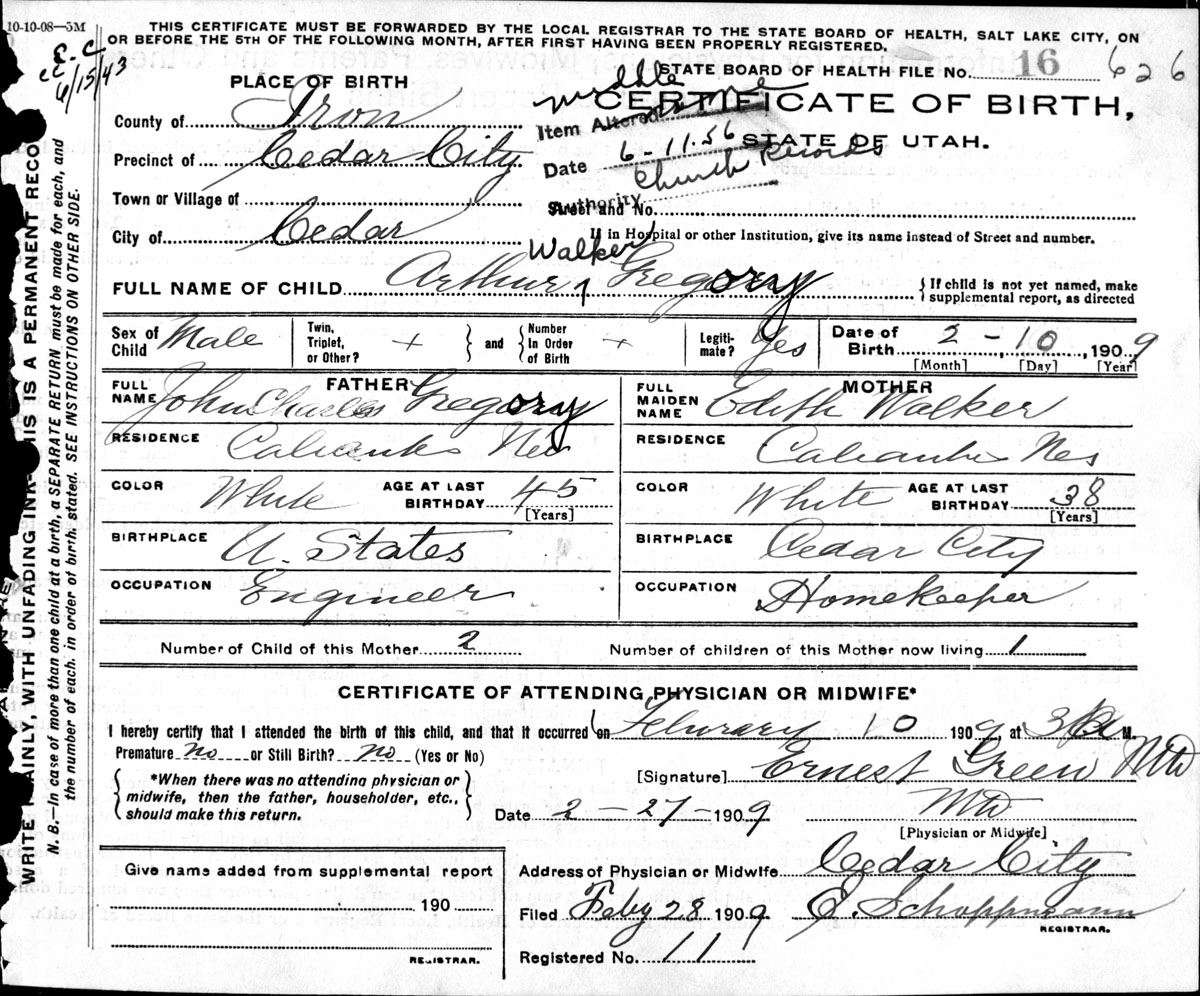 10-10-08—5M
THIS CERTIFICATE MUST BE FORWARDED BY THE LOCAL REGISTRAR TO THE STATE BOARD OF HEALTH, SALT LAKE CITY, ON
OR BEFORE THE 5TH OF THE FOLLOWING MONTH, AFTER FIRST HAVING BEEN PROPERLY REGISTERED.
E. C
4/15/43
PLACE OF BIRTH
STATE BOARD OF HEALTH FILE No. 16 626
CERTIFICATE OF BIRTH,
STATE OF UTAH.
County of Iron
Item Altered middle name
Precinct of Cedar City
Date 6-11.56
Authority Church Records
Town or Village of
Street and No.
City of Cedar
If in Hospital or other Institution, give its name instead of Street and number.
Walker
FULL NAME OF CHILD Arthur Gregory
{ If child is not yet named, make
supplemental report, as directed
Sex of Child Male
Twin, Triplet, or Other? +
and
Number In Order of Birth +
Legiti- mate? Yes
Date of Birth 2 - 10, 1909
[Month] [Day] [Year]
FATHER
FULL NAME John Charles Gregory
RESIDENCE Caliente Nev
COLOR White AGE AT LAST BIRTHDAY 45
[Years]
BIRTHPLACE U. States
OCCUPATION Engineer
MOTHER
FULL MAIDEN NAME Edith Walker
RESIDENCE Caliente Nev
COLOR White AGE AT LAST BIRTHDAY 38
[Years]
BIRTHPLACE Cedar City
OCCUPATION Homekeeper
Number of Child of this Mother 2
Number of children of this Mother now living 1
CERTIFICATE OF ATTENDING PHYSICIAN OR MIDWIFE*
I hereby certify that I attended the birth of this child, and that it occurred on February 10 1909, at 3 M.
Premature No or Still Birth? No (Yes or No)
{ *When there was no attending physician or midwife, then the father, householder, etc., should make this return. }
[Signature] Ernest Green MD
Date 2-27-1909
MD
[Physician or Midwife]
Give name added from supplemental report
190
REGISTRAR.
Address of Physician or Midwife Cedar City
Filed Feby 28 1909 E. Schoppmann
REGISTRAR.
Registered No. 11
WRITE PLAINLY, WITH UNFADING INK—THIS IS A PERMANENT RECO
N. B.—In case of more than one child at a birth, a SEPARATE RETURN must be made for each, and
the number of each, in order of birth, stated. SEE INSTRUCTIONS ON OTHER SIDE.